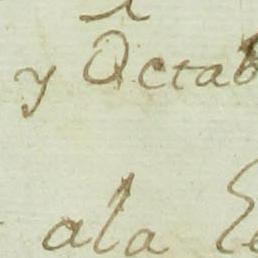 y Octab
ala